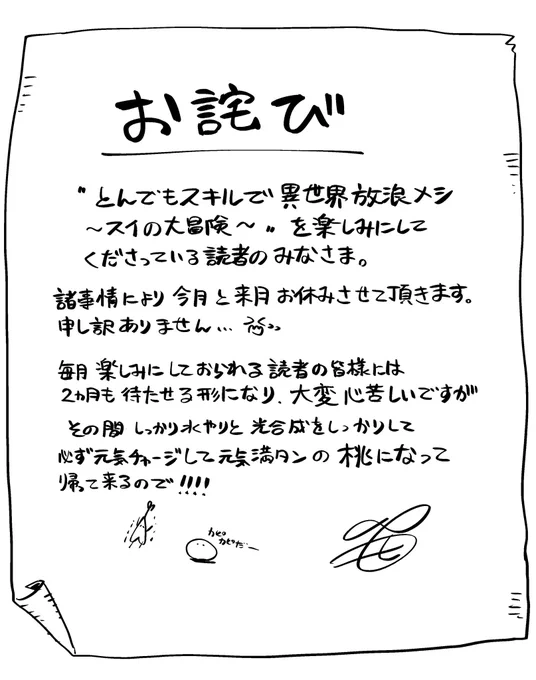 お詫び
"とんでもスキルで異世界放浪メシ
～スイの大冒険～"を楽しみにして
くださっている読者のみなさま。
諸事情により今月と来月お休みさせて頂きます。
申し訳ありません…
毎月楽しみにしておられる読者の皆様には
2ヵ月も待たせる形になり、大変心苦しいですが
その間しっかり水やりと光合成をしっかりして
必ず元気チャージして元気満タンの桃になって
帰って来るので!!!!
カピ
カピだー